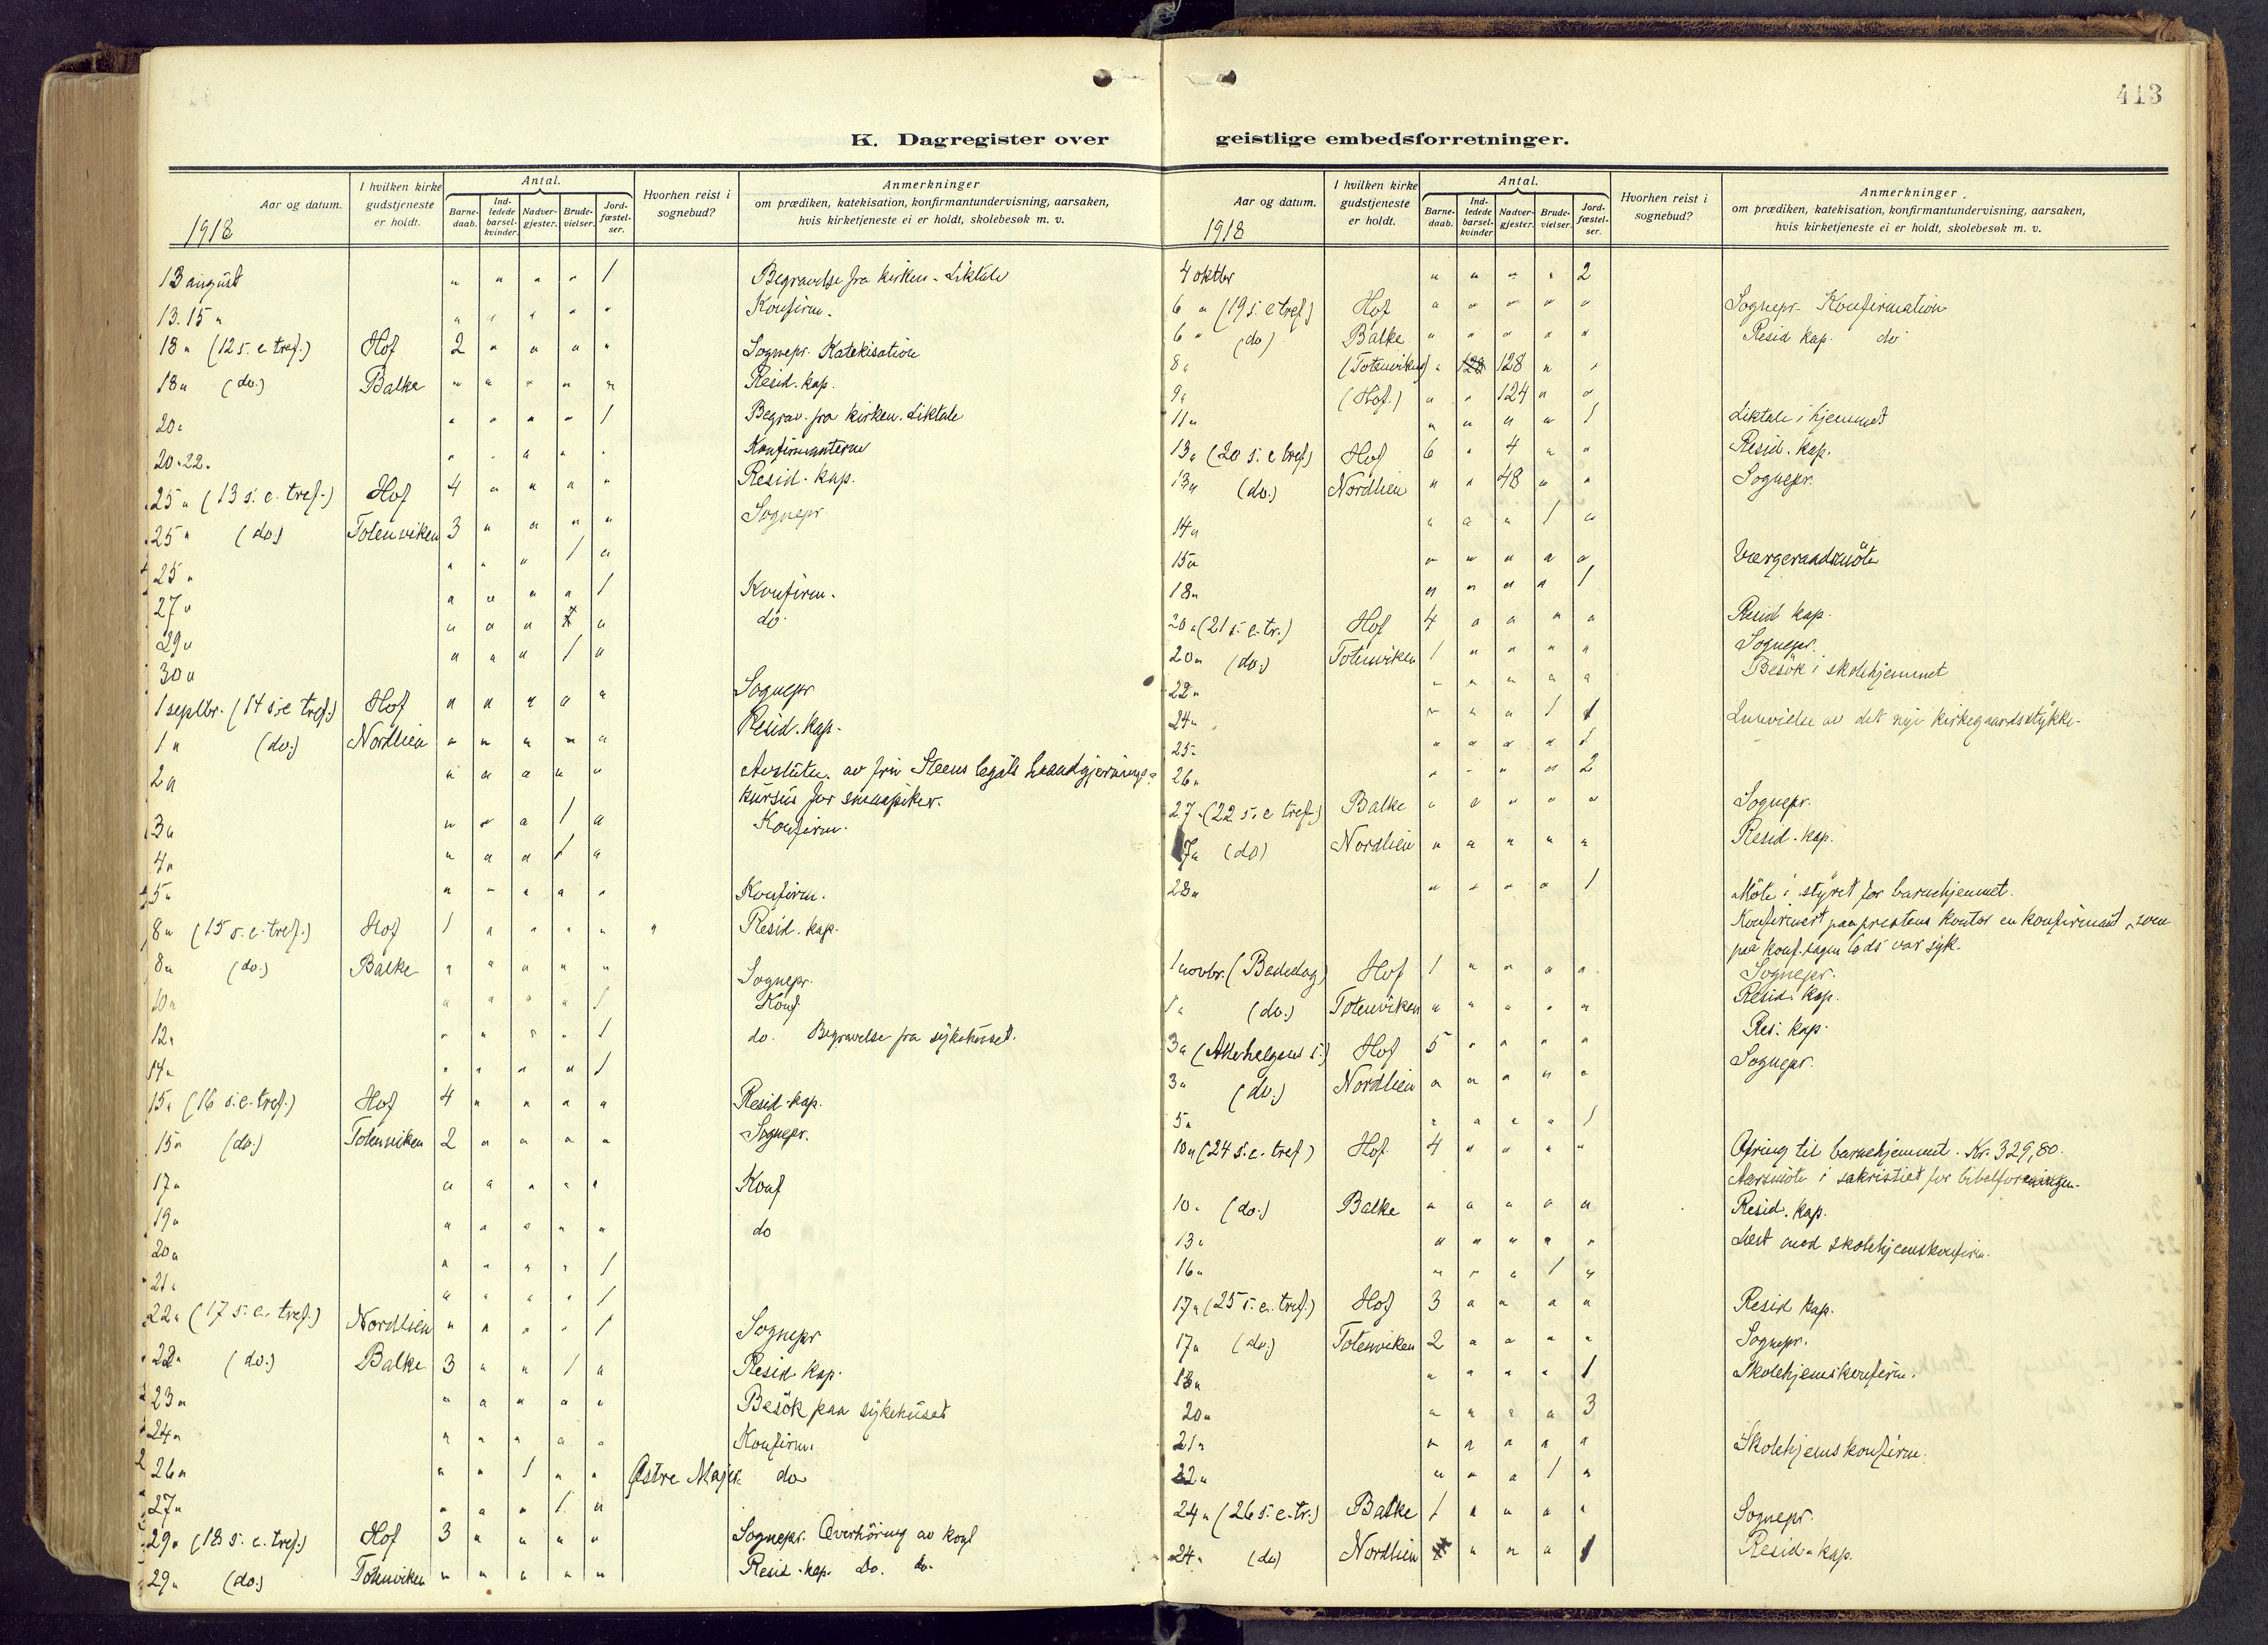 413
K. Dagregister over geistlige embedsforretninger.
Aar og datum. I hvilken kirke gudstjeneste er holdt. Antal. Barne-daab. Ind-ledede barsel-kvinder. Nadver-gjester. Brude-vielser. Jord-fæstel-ser. Hvorhen reist i sognebud? Anmerkninger om prædiken, katekisation, konfirmantundervisning, aarsaken, hvis kirketjeneste ei er holdt, skolebesøk m. v.
1918
13 august " " " " 1 Begravelse fra kirken. Liktale
13.15 " " " " " " Konfirm.
18 " (12 s. e. tref.) Hof 2 " " " " Sognepr. Katekisation
18 " (do.) Balke " " " " " Resid. kap.
20 " " " " " 1 Begrav. fra kirken. Liktale
20.22. " " " " " Konfirmanterne
25 " (13 s. e. tref.) Hof 4 " " " " Resid. kap.
25 " (do.) Totenviken 3 " " " " Sognepr
25 " " " " 1 "
27 " " " " " 1 Konfirm.
29 " " " " " do.
30 " " " " 1 "
1 septbr. (14 s. e tref.) Hof " " " " " Sognepr
1 " (do.) Nordlien " " " " " Resid. kap.
2 " " " " " " Avslutn. av frü Steens legats haandgjernings-
kursus for smaapiker.
3 " " " " 1 " Konfirm.
4 " " " " 1 "
5 " " " " " " Konfirm.
8 " (15 s. e. tref.) Hof 1 " " " " " Resid. kap.
8 " (do.) Balke " " " " " Sognepr.
10 " " " " " 1 Konf.
12 " " " " " 1 do. Begravelse fra sykehuset.
14 " " " " " 1
15 " (16 s. e. tref.) Hof 4 " " " " Resid. kap.
15 " (do.) Totenviken 2 " " " " Sognepr.
17 " " " " " " Konf
19 " " " " " " do
20 " " " " " 1
21 " " " " " 1
22 " (17 s. e. tref.) Nordlien " " " " 1 Sognepr
22 " (do.) Balke 3 " " 1 " Resid. kap.
23 " " " " " " Besök paa sykehuset
24 " " " " " " Konfirm.
26 " " " 1 " " Østre Majer do
27 " " " " 1 "
29 " (18 s. e. tref.) Hof 3 " " " " Sognepr. Overhöring av konf
29 " (do.) Totenviken " " " " " Resid. kap. Do. do.
Aar og datum. I hvilken kirke gudstjeneste er holdt. Antal. Barne-daab. Ind-ledede barsel-kvinder Nadver-gjester. Brude-vielser. Jord-fæstel-ser. Hvorhen reist i sognebud? Anmerkninger. om prædiken, katekisation, konfirmantundervisning, aarsaken, hvis kirketjeneste ei er holdt, skolebesøk m. v.
1918
4 oktbr " " " " 2
6 " (19 s. e tref.) Hof " " " " " Sognepr. Konfirmation
6 " (do) Balke " " " " " Resid kap. do
8 " (Totenviken) " 128 128 " "
9 " (Hof.) " " 124 " "
11 " " " " " 1 Liktale i hjemmet
13 " (20 s. e tref.) Hof 6 " 4 " " Resid. kap.
13 " (do.) Nordlien " " 48 " " Sognepr.
14 " " " " 1 "
15 " " " " " " Værgeraadsmöte
18 " " " " " 1
20 " (21 s. e. tr.) Hof 4 " " " " Resid kap.
20 " (do.) Totenviken 1 " " " " Sognepr.
22 " " " " " " Besök i skolehjemmet
24 " " " " 1 1 Innvielse av det nye kirkegaardsstykke.
25 " " " " " 1
26 " " " " " 2
27 " (22 s. e tref.) Balke " " " " " Sognepr.
27 " (do) Nordlien " " " " " Resid. kap.
28 " " " " " 1 Möte i styret for barnehjemmet.
Konfirmert paa prestens kontor en konfirmant, som
paa konf.dagen var syk.
1 novbr. (Bededag) Hof 1 " " " " Sognepr.
1 " (do.) Totenviken " " " " " Resid. kap.
3 " (Allehelgens s.) Hof 5 " " " " Res. kap.
3 " (do.) Nordlien " " " " " Sognepr.
5 " " " " " 1
10 " (24 s. e. tref) Hof 4 " " " " Ofring til barnehjemmet. Kr. 329,80.
Aarsmöte i sakristiet for bibelforeningen.
10 " (do.) Balke " " " " " Resid. kap.
13 " " " " " " Læst med skolehjemskonfirm.
16 " " " " 1 "
17 " (25 s. e. tref.) Hof 3 " " " " Resid kap.
17 " (do.) Totenviken 2 " " " " Sognepr.
18 " " " " " 1 Skolehjemskonfirm.
20 " " " " " 3
21 " " " " " " Skolehjemskonfirm.
22 " " " " 1 "
24 " (26 s. e. tr.) Balke 1 " " " " Sognepr.
24 " (do) Nordlien " " " 1 Resid. kap.